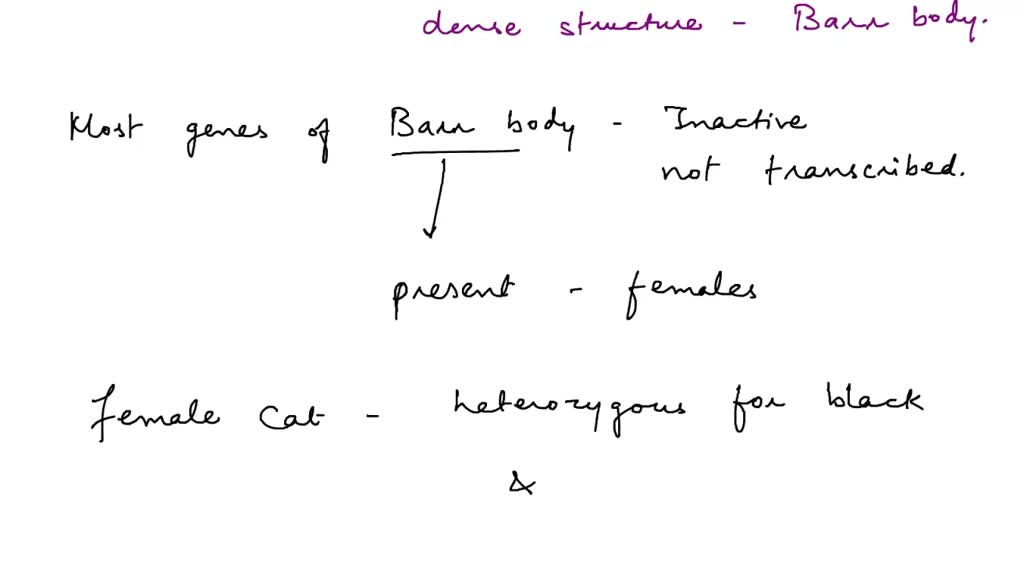 dense structure - Barr body.
Most genes of Barr body - Inactive
not transcribed.
present - females
female cat - heterozygous for black
&